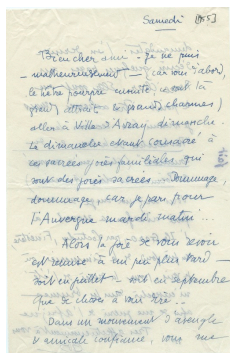 Samedi [1955]
Bien cher ami - Je ne puis
- malheureusement - car vous d'abord,
le hêtre pourpre ensuite, (ce sont là
grand attrait et grands charmes)
aller à Ville d'Avray dimanche.
Le dimanche étant consacré
aux sacrées joies familiales qui
sont des joies sacrées. Dommage,
dommage, car je pars pour
l'Auvergne mardi matin...
Alors la joie de vous revoir
est remise à un peu plus tard -
soit en juillet - soit en septembre
que de choses à vous dire !
Dans un mouvement d'aveugle
& amicale confiance, vous me